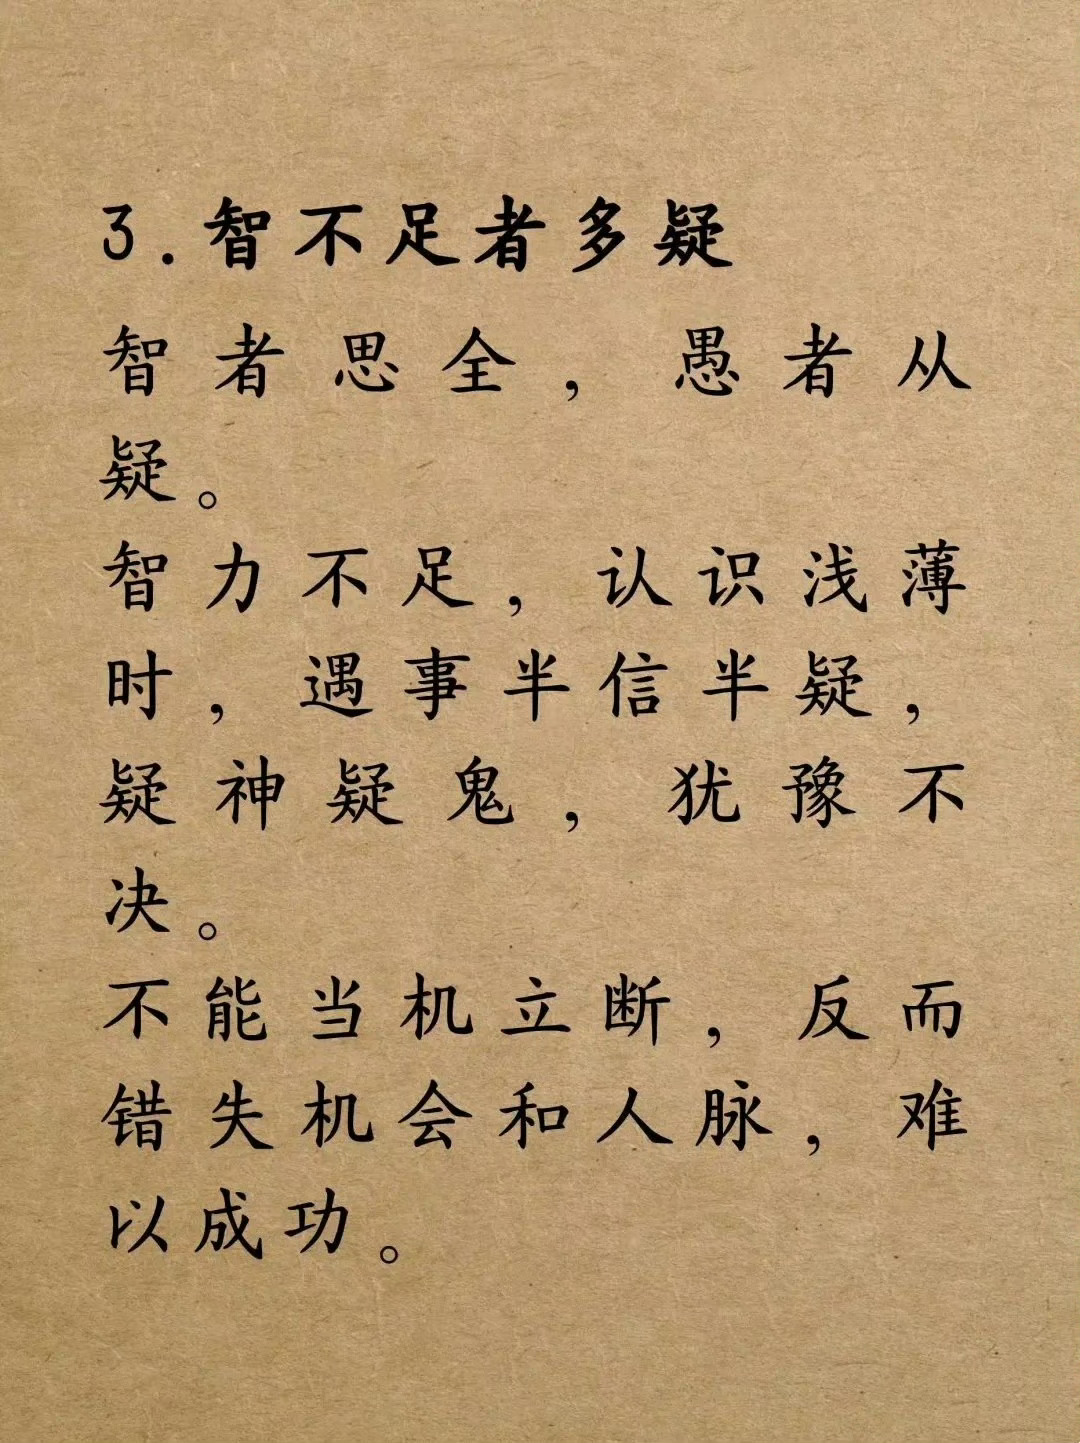 3.智不足者多疑
智者思全，愚者从
疑。
智力不足，认识浅薄
时，遇事半信半疑，
疑神疑鬼，犹豫不
决。
不能当机立断，反而
错失机会和人脉，难
以成功。